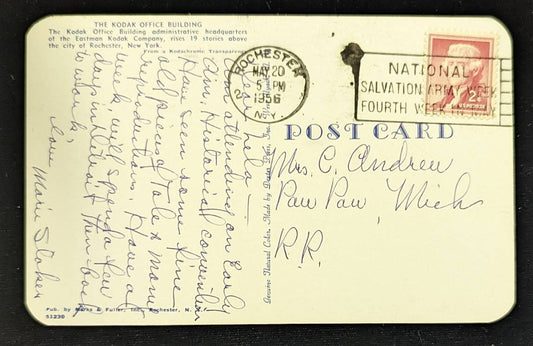 THE KODAK OFFICE BUILDING
The Kodak Office Building administrative headquarters
of the Eastman Kodak Company, rises 19 stories above
the city of Rochester, New York.
From a Kodachrome Transparency
Dear
Am attending an Early
Am. Historical convention
Have seen some fine
old pieces and many
reproductions. Have a
week, will spend a few
days in Detroit then back
to work.
Love
Marie
Pub. by Manks & Fuller, Inc., Rochester, N. Y.
51230
Genuine Natural Color Made by
POST CARD
ROCHESTER
MAY 20
5 PM
1956
N.Y.
2
NATIONAL
SALVATION ARMY WEEK
FOURTH WEEK IN MAY
2¢
Mrs. C. Andrew
Paw Paw, Mich
R.R.